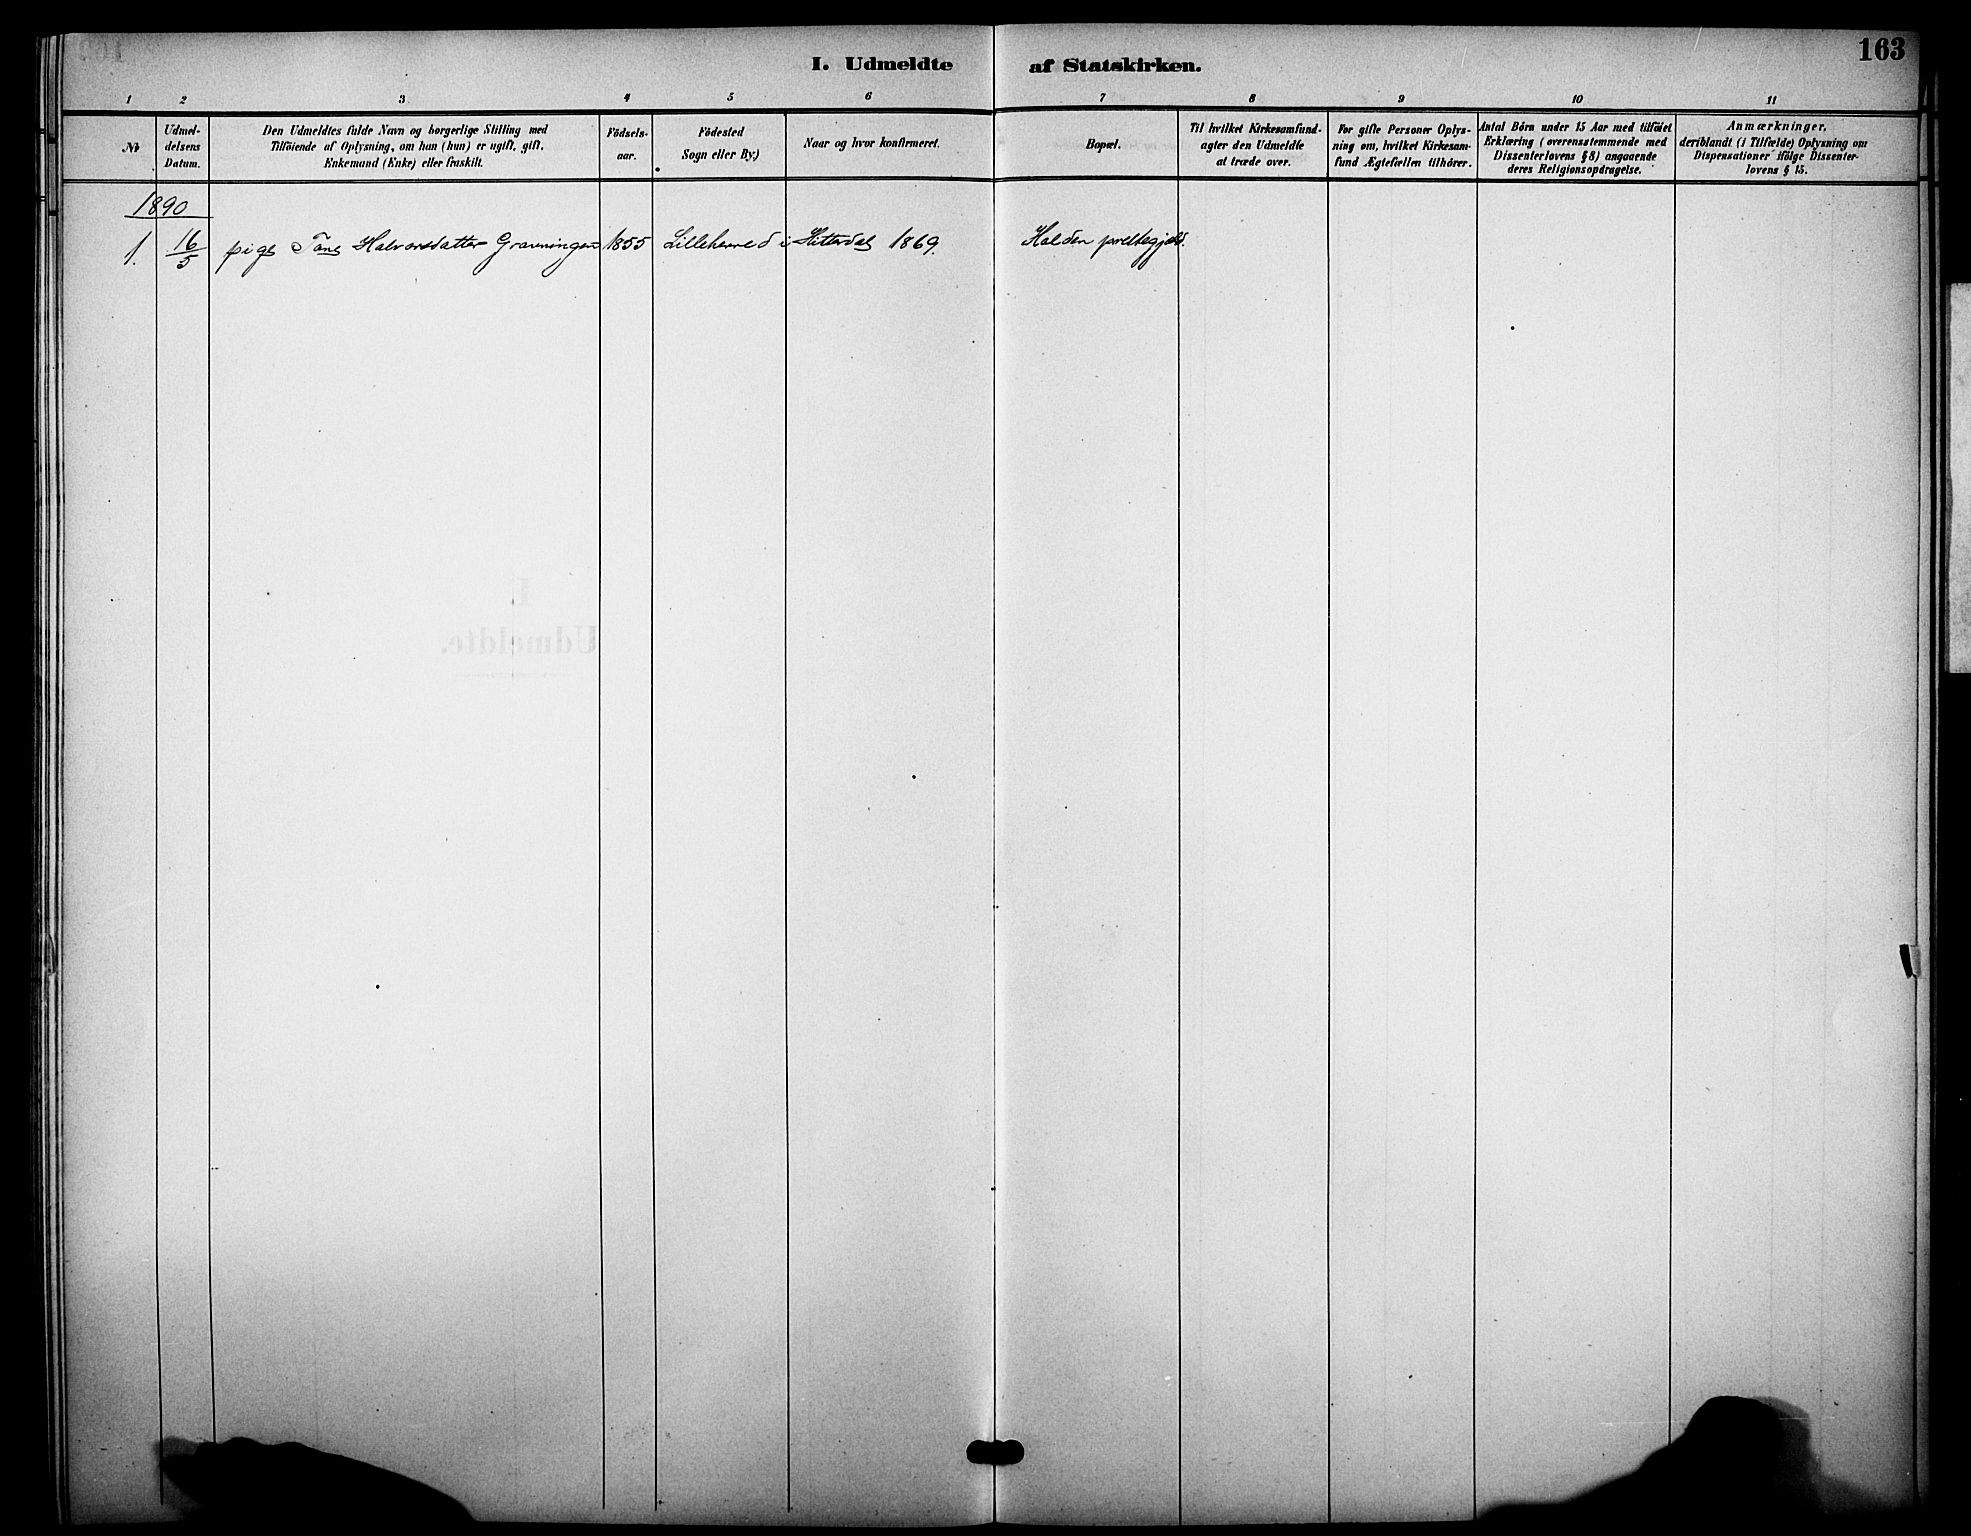 163
I. Udmeldte af Statskirken.
1 2 3 4 5 6 7 8 9 10 11
№
Udmel-
delsens
Datum.
Den Udmeldtes fulde Navn og borgerlige Stilling med
Tilföiende af Oplysning, om han (hun) er ugift, gift,
Enkemand (Enke) eller fraskilt.
Födsels-
aar.
Födested
Sogn eller By.)
Naar og hvor konfirmeret.
Bopæl.
Til hvilket Kirkesamfund-
agter den Udmeldte
at træde over.
For gifte Personer Oplys-
ning om, hvilket Kirkesam-
fund Ægtefællen tilhörer.
Antal Börn under 15 Aar med tilföiet
Erklæring (overensstemmende med
Dissenterlovens § 8) angaaende
deres Religionsopdragelse.
Anmærkninger,
deriblandt (i Tilfælde) Oplysning om
Dispensationer ifölge Dissenter-
lovens § 15.
1890
1. 16/5 pige Tone Halvorsdatter 1855 Lilleherred i Hitterdal 1869.
I
Udmeldte.